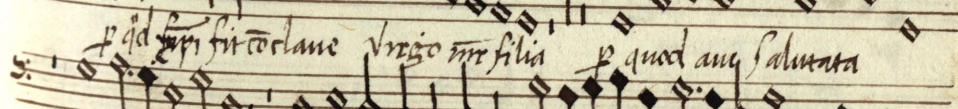 p qd fit cōclaue Virgo mr̄ filia p quod aue Salutata